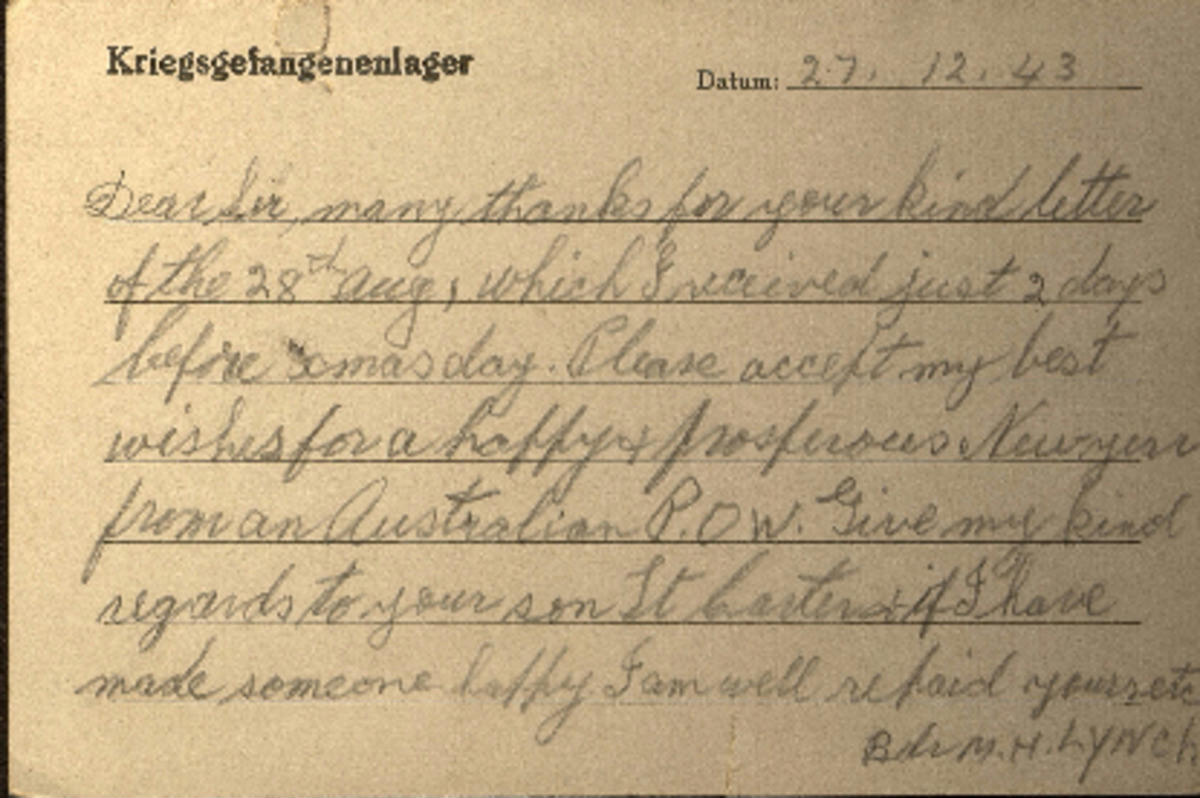 Kriegsgefangenenlager
Datum: 27. 12. 43
Dear Sir, many thanks for your kind letter
of the 28th Aug, which I received just 2 days
before Xmas day. Please accept my best
wishes for a happy & prosperous New year
from an Australian P.O.W. Give my kind
regards to your son Lt Carter & if I have
made someone happy I am well repaid yours etc
Bdr M.H. LYNCH.